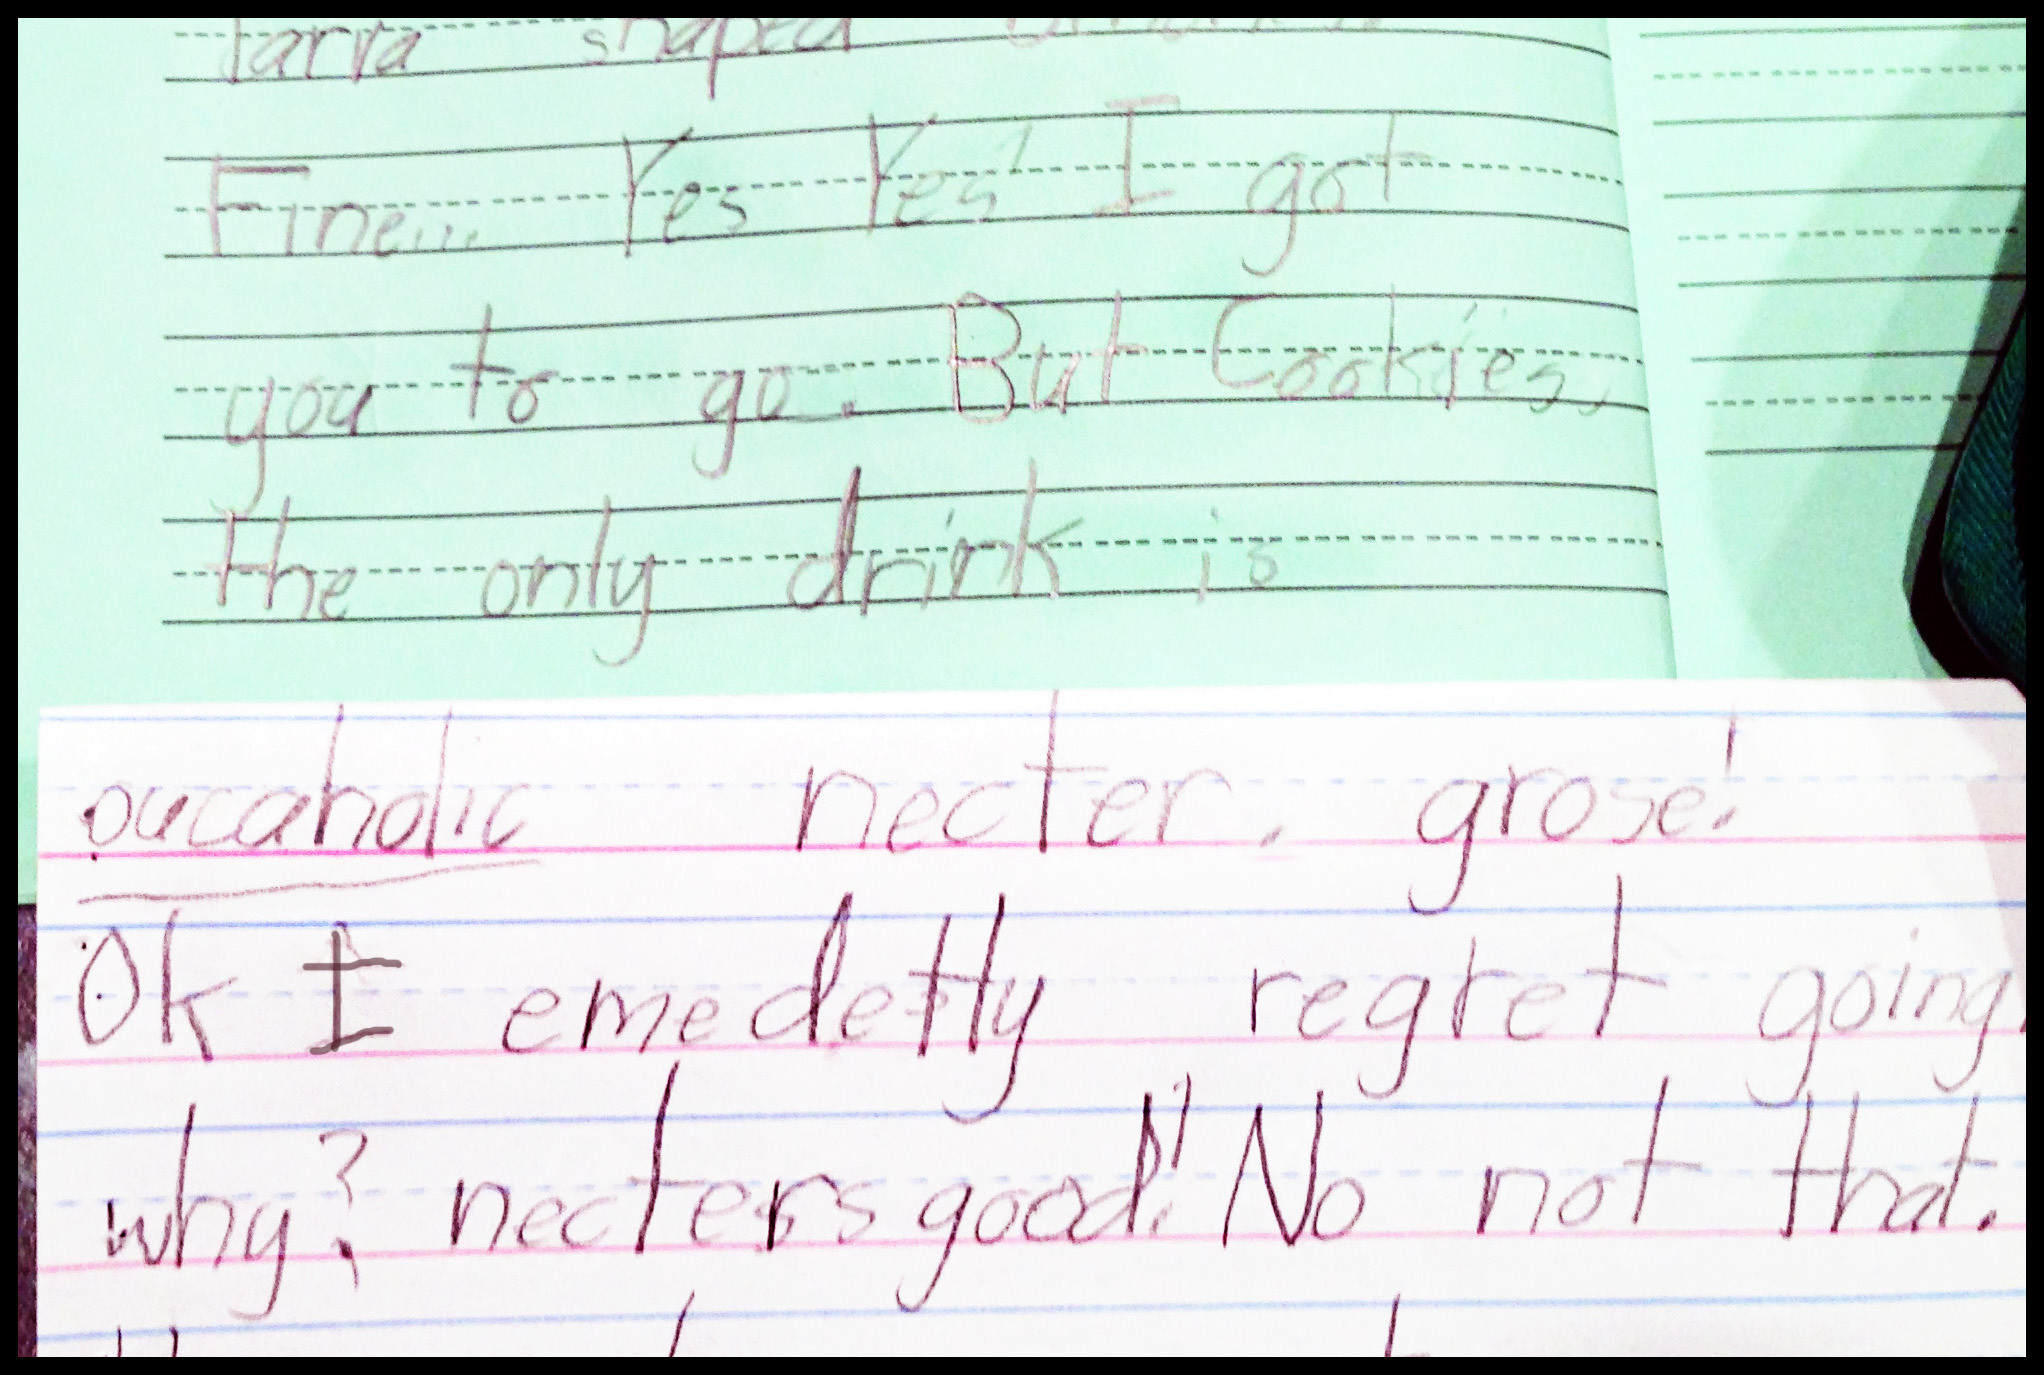 larva shaped
Fine... Yes Yes! I got
you to go. But Cookies,
the only drink is
oucaholic necter. grose!
Ok I emedetly regret going.
why? necters good! No not that.